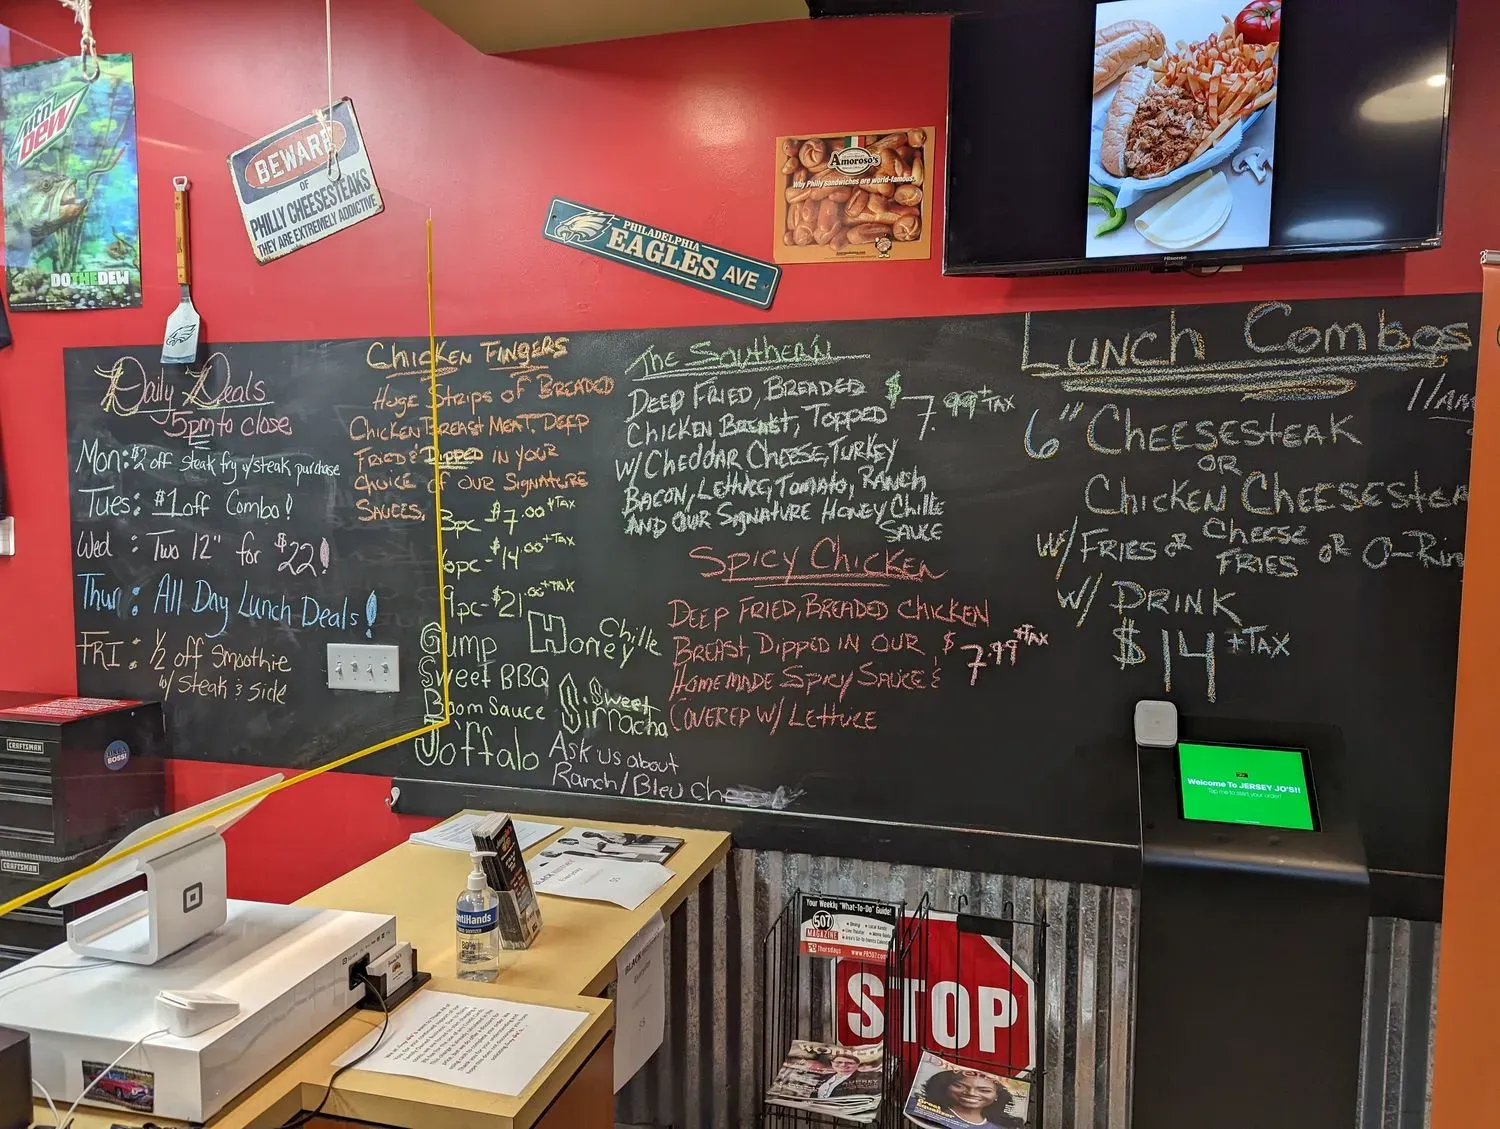 Mtn
DEW
DO THE DEW
BEWARE
OF
PHILLY CHEESESTEAKS
THEY ARE EXTREMELY ADDICTIVE
PHILADELPHIA
EAGLES AVE
Amoroso's
Why Philly sandwiches are world-famous.
Hisense
Daily Deals
5pm to close
Mon: $2 off steak fry w/steak purchase
Tues: $1 off Combo!
Wed : Two 12" for $22!
Thur: All Day Lunch Deals!
FRI: 1/2 off Smoothie
w/ Steak & Side
Chicken Fingers
Huge Strips of Breaded
Chicken Breast Meat, Deep
Fried & Dipped in your
Choice of our Signature
Sauces.
3pc - $7.00 +TAX
6pc - $14.00 +TAX
9pc - $21.00 +TAX
Gump
Sweet BBQ
Boom Sauce
Joffalo
Honey Chille
Sweet
Sirracha
Ask us about
Ranch/Bleu
The Southern
Deep Fried, Breaded
Chicken Breast, Topped
w/ Cheddar Cheese, Turkey
Bacon, Lettuce, Tomato, Ranch
and our Signature Honey Chille
Sauce
$7.99 +TAX
Spicy Chicken
Deep Fried, Breaded Chicken
Breast, Dipped in our
Homemade Spicy Sauce &
Covered w/ Lettuce
$7.99 +TAX
Lunch Combos
11am
6" Cheesesteak
or
Chicken Cheesestea
w/ Fries or Cheese
Fries or O-Rin
w/ Drink
$14 +TAX
CRAFTSMAN
LIKE A
BOSS!
CRAFTSMAN
Welcome To JERSEY JO'S!!
Tap me to start your order!
Your Weekly "What-To-Do" Guide!
507
MAGAZINE
Thursdays
STOP